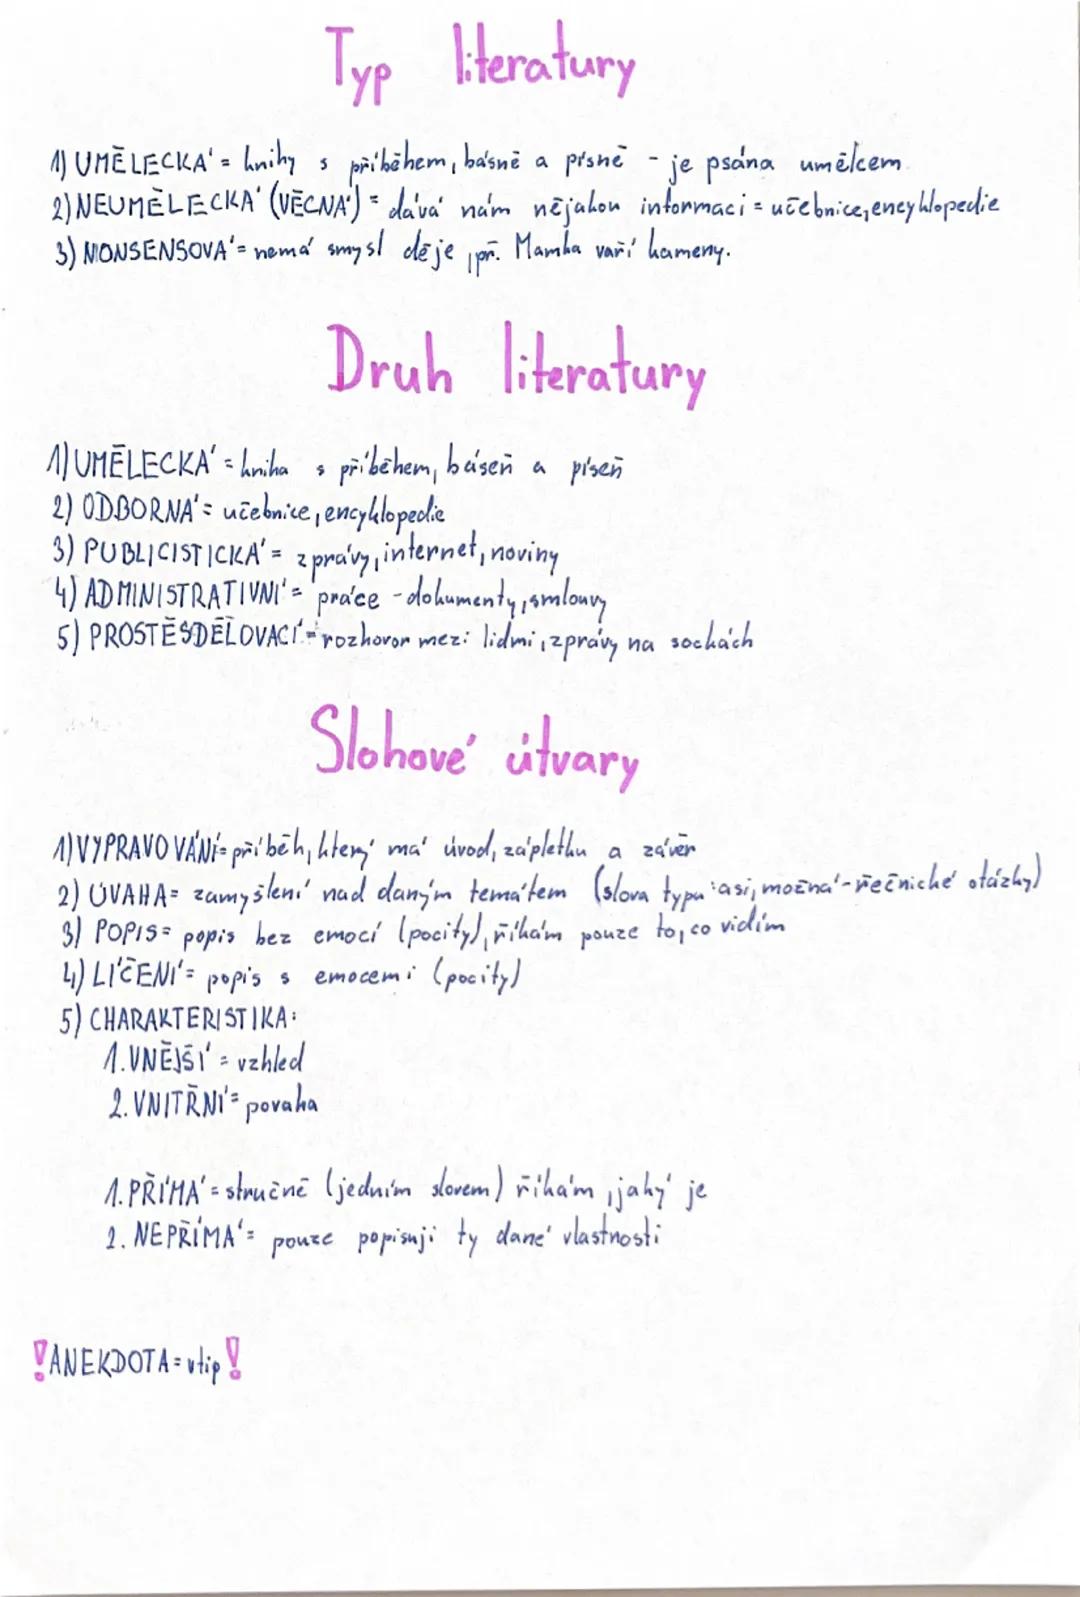 Typ literatury
1) UMĚLECKÁ = knihy s příběhem, básně a písně - je psána umělcem.
2) NEUMĚLECKÁ (VĚCNÁ) = dává nám nějakou informaci = učebnice, encyklopedie
3) NONSENSOVÁ = nemá smysl děje, př. Mamka vaří kameny.
Druh literatury
1) UMĚLECKÁ = kniha s příběhem, báseň a píseň
2) ODBORNÁ = učebnice, encyklopedie
3) PUBLICISTICKÁ = zprávy, internet, noviny
4) ADMINISTRATIVNÍ = práce - dokumenty, smlouvy
5) PROSTĚSDĚLOVACÍ = rozhovor mezi lidmi, zprávy na sockách
Slohové útvary
1) VYPRAVOVÁNÍ = příběh, který má úvod, zápletku a závěr
2) ÚVAHA = zamyšlení nad daným tématem (slova typu: asi, možná - řečnické otázky)
3) POPIS = popis bez emocí (pocity), říkám pouze to, co vidím
4) LÍČENÍ = popis s emocemi (pocity)
5) CHARAKTERISTIKA:
1. VNĚJŠÍ = vzhled
2. VNITŘNÍ = povaha
1. PŘÍMÁ = stručně (jedním slovem) říkám, jaký je
2. NEPŘÍMÁ = pouze popisuji ty dané vlastnosti
! ANEKDOTA = vtip !